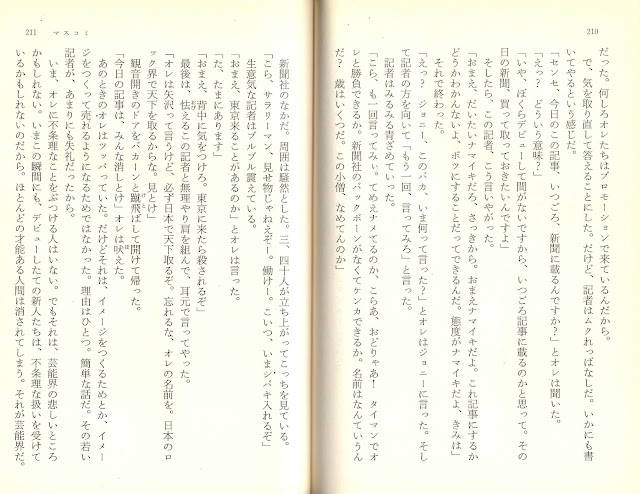 210
だった。何しろオレたちはプロモーションで来ているんだから。
で、気を取り直して答えることにした。だけど、記者はムクれっぱなしだ。いかにも書
いてやるという感じだ。
「センセ、今日のこの記事、いつごろ、新聞に載るんですか?」とオレは聞いた。
「えっ? どういう意味?」
「いや、ぼくらデビューして間がないですから、いつごろ記事に載るのかと思って。その
日の新聞、買って取っておきたいんですよ」
そしたら、この記者、こう言いやがった。
「おまえ、だいたいナマイキだろ、さっきから。おまえナマイキだよ。これ記事にするか
どうかわかんないよ、ボツにすることだってできるんだ。態度がナマイキだよ、きみは」
それで終わった。
「えっ? ジョニー、このバカ、いま何って言った?」とオレはジョニーに言った。そし
て記者の方を向いて「もう一回、言ってみろ」と言った。
記者はみるみる青ざめていった。
「こら、も一回言ってみい。てめえナメてるのか、こらあ、おどりゃあ! タイマンでオ
レと勝負できるか。新聞社のバックボーンがなくてケンカできるか。名前はなんていうん
だ? 歳はいくつだ。この小僧、なめてんのか」
211 マスコミ
新聞社のなかだ。周囲は騒然とした。三、四十人が立ち上がってこっちを見ている。
「こら、サラリーマン、見せ物じゃねえぞー。働けー。こいつ、いまシバキ入れるぞ」
生意気な記者はブルブル震えている。
「おまえ、東京来ることがあるのか」とオレは言った。
「た、たまにあります」
「おまえ、背中に気をつけろ。東京に来たら殺されるぞ」
最後は、怯えるこの記者と無理やり肩を組んで、耳元で言ってやった。
「オレは矢沢って言うけど、必ず日本で天下取るぞ。忘れるな、オレの名前を。日本のロ
ック界で天下を取るからな。見とけ」
観音開きのドアをバカーンと蹴飛ばして開けて帰った。
「今日の記事は、みんな消しとけ」オレは吠えた。
あのときのオレはツッパっていた。だけどそれは、イメージをつくるためとか、イメー
ジをつくって売れるようになるためではなかった。理由はひとつ。簡単な話だ。その若い
記者が、あまりにも失礼だったから。
いま、オレに不条理なことをぶつける人はいない。でもそれは、芸能界の悲しいところ
かもしれない。いまこの瞬間にも、デビューしたての新人たちは、不条理な扱いを受けて
いるかもしれないのだから。ほとんどの才能ある人間は消されてしまう。それが芸能界だ。